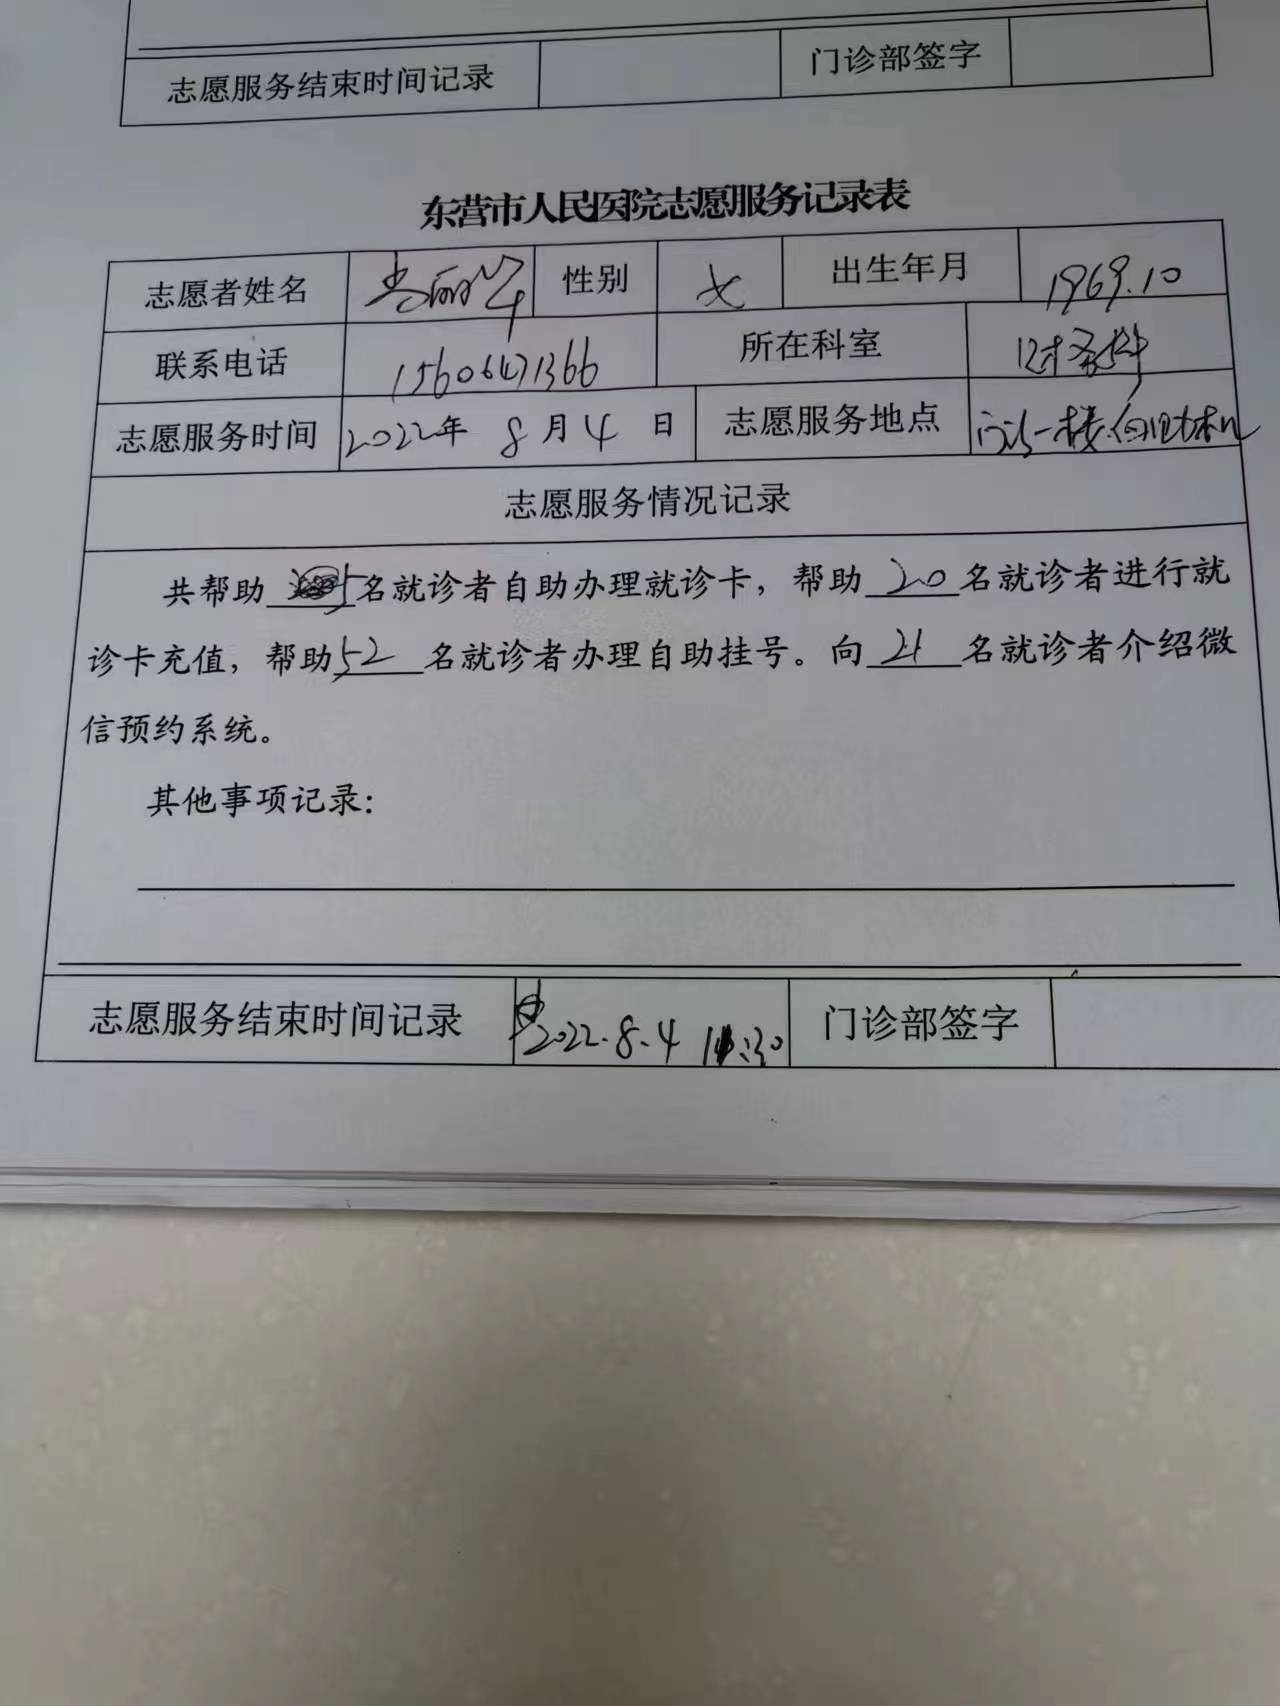 志愿服务结束时间记录 门诊部签字
东营市人民医院志愿服务记录表
志愿者姓名 性别 女 出生年月 1969.10
联系电话 15606471366 所在科室 财务科
志愿服务时间 2022年 8月4日 志愿服务地点 门诊一楼自助机
志愿服务情况记录
共帮助 5名就诊者自助办理就诊卡，帮助 20 名就诊者进行就
诊卡充值，帮助52 名就诊者办理自助挂号。向 21 名就诊者介绍微
信预约系统。
其他事项记录：
志愿服务结束时间记录 2022.8.4 11:30 门诊部签字